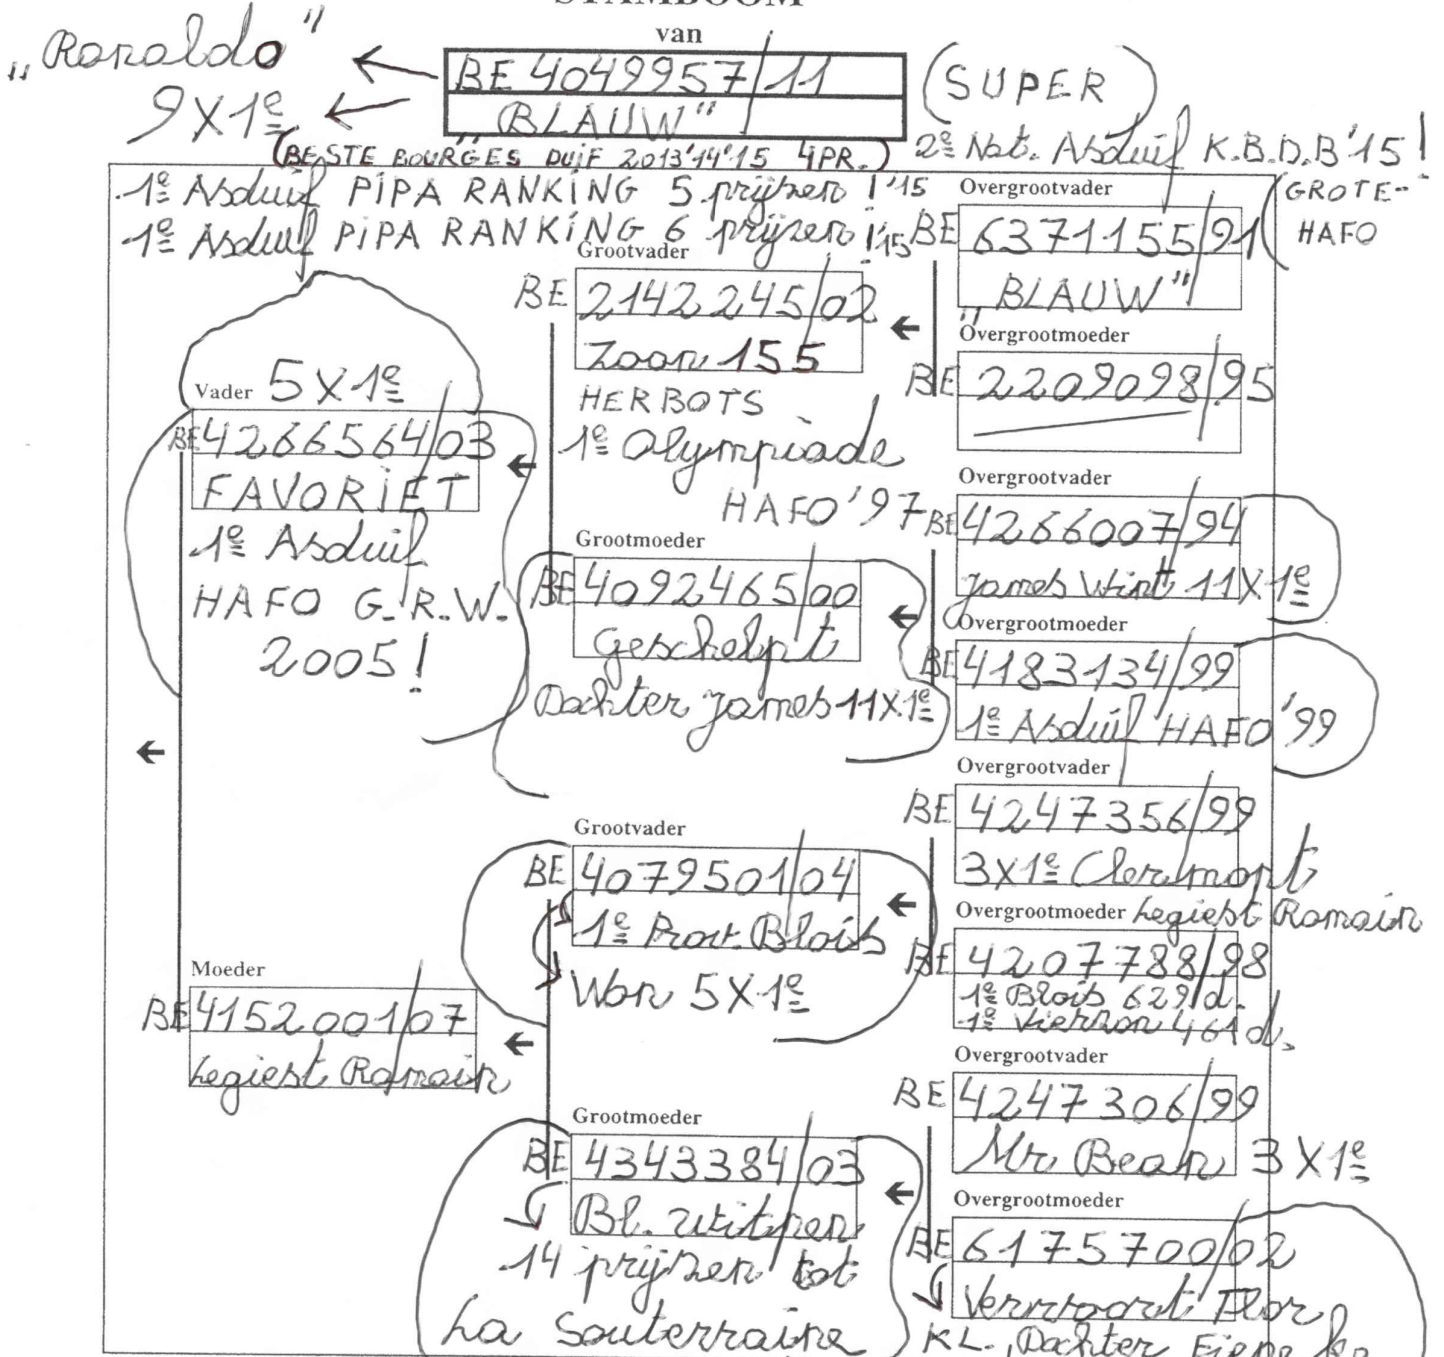 STAMBOOM
van
„Ronaldo"
9X1e
BE 4049957/11
„BLAUW"
(SUPER)
(BESTE BOURGES DUIF 2013'14'15 4PR.)
2e Nat. Asduif K.B.D.B'15!
1e Asduif PIPA RANKING 5 prijzen !'15
1e Asduif PIPA RANKING 6 prijzen !'15
Vader 5X1e
BE 4266564/03
FAVORIET
1e Asduif
HAFO G.R.W.
2005!
Moeder
BE 4152001/07
Legiest Romain
Grootvader
BE 2142245/02
Zoon 155
HERBOTS
1e Olympiade
HAFO'97
Grootmoeder
BE 4092465/00
Geschelpt
Dochter James 11X1e
Grootvader
BE 4079501/04
1e Prov. Blois
Won 5X1e
Grootmoeder
BE 4343384/03
Bl. witpen
14 prijzen tot
La Souterraine
Overgrootvader
BE 6371155/91
„BLAUW"
GROTE-
HAFO
Overgrootmoeder
BE 2209098/95
Overgrootvader
BE 4266007/94
James Wint 11X1e
Overgrootmoeder
BE 4183134/99
1e Asduif HAFO'99
Overgrootvader
BE 4247356/99
3X1e Clermont
Overgrootmoeder Legiest Romain
BE 4207788/98
1e Blois 629d.
1e Vierzon 461d.
Overgrootvader
BE 4247306/99
Mr Bean 3X1e
Overgrootmoeder
BE 6175700/02
Vervoort Flor
KL. Dochter